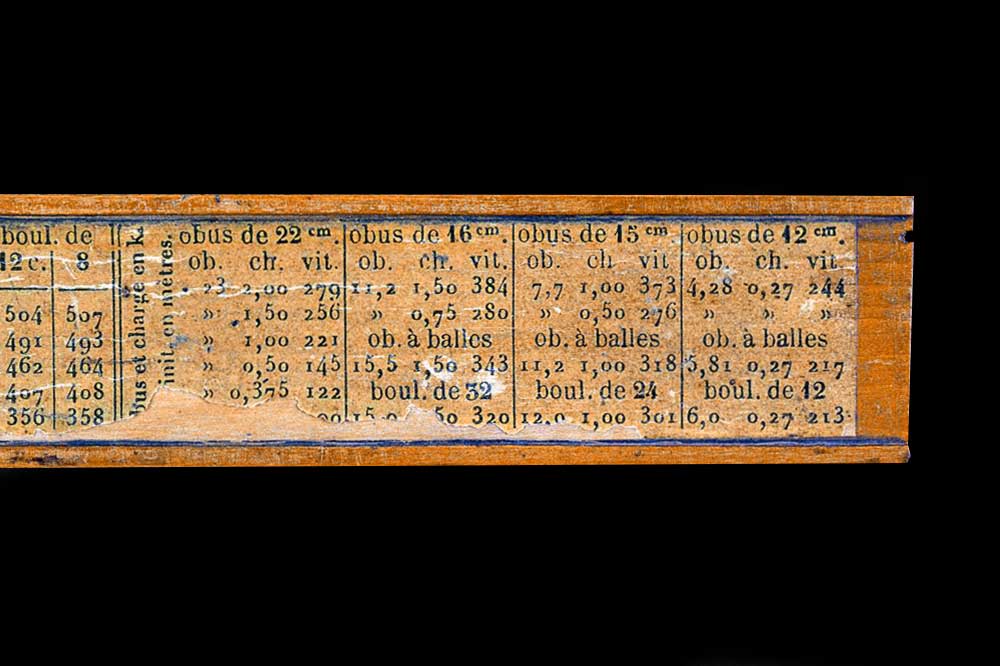 boul. de
12 c. 8
504 507
491 493
462 464
407 408
356 358
bus et charge en k.
init. en mètres.
obus de 22 cm.
ob. ch. vit.
23 2,00 279
» 1,50 256
» 1,00 221
» 0,50 145
» 0,375 122
obus de 16 cm.
ob. ch. vit.
11,2 1,50 384
» 0,75 280
ob. à balles
15,5 1,50 343
boul. de 32
15,0 50 320
obus de 15 cm
ob. ch vit
7,7 1,00 373
» 0,50 276
ob. à balles
11,2 1,00 318
boul. de 24
12,0 1,00 301
obus de 12 cm.
ob. ch. vit.
4,28 0,27 244
» » »
ob. à balles
5,81 0,27 217
boul. de 12
6,0 0,27 213